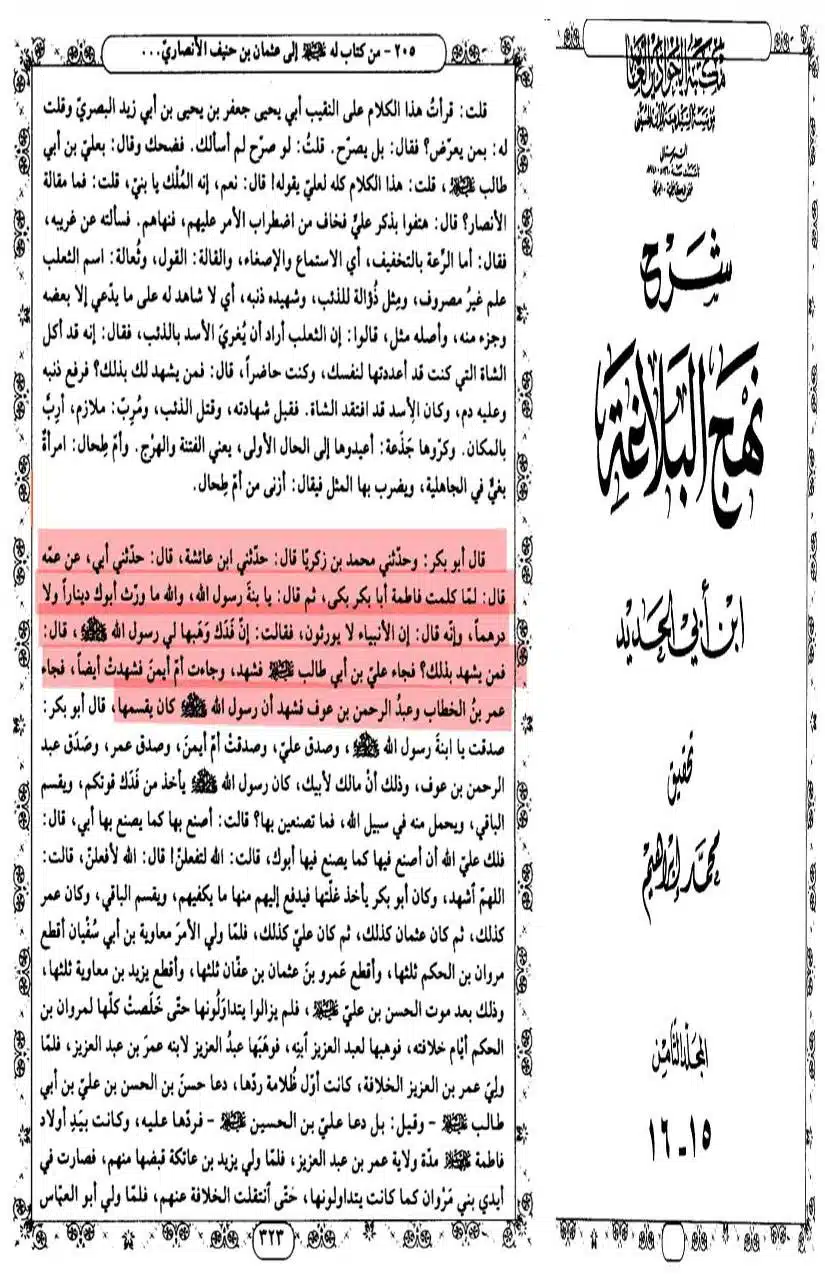 ٢٠٥ - من كتاب له ﷺ إلى عثمان بن حنيف الأنصاريّ...
قلت: قرأتُ هذا الكلام على النقيب أبي يحيى جعفر بن يحيى بن أبي زيد البصريّ وقلت
له: بمن يعرّض؟ فقال: بل يصرّح. قلتُ: لو صرّح لم أسألك. فضحك وقال: بعليّ بن أبي
طالب ﷺ، قلت: هذا الكلام كله لعليّ يقوله! قال: نعم، إنه المُلْك يا بنيّ، قلت: فما مقالة
الأنصار؟ قال: هتفوا بذكر عليّ فخاف من اضطراب الأمر عليهم، فنهاهم. فسألته عن غريبه،
فقال: أما الرِّعة بالتخفيف، أي الاستماع والإصغاء، والقالة: القول، وثُعالة: اسم الثعلب
علم غيرُ مصروف، ومِثل ذُؤالة للذئب، وشهيده ذنبه، أي لا شاهد له على ما يدّعي إلا بعضه
وجزء منه، وأصله مثل، قالوا: إن الثعلب أراد أن يُغريَ الأسد بالذئب، فقال: إنه قد أكل
الشاة التي كنت قد أعددتها لنفسك، وكنت حاضراً، قال: فمن يشهد لك بذلك؟ فرفع ذنبه
وعليه دم، وكان الأسد قد افتقد الشاة. فقبل شهادته، وقتل الذئب، ومُرِبّ: ملازم، أربَّ
بالمكان. وكرّوها جَذَعة: أعيدوها إلى الحال الأولى، يعني الفتنة والهرْج. وأمّ طِحال: امرأةٌ
بغيٌّ في الجاهلية، ويضرب بها المثل فيقال: أزنى من أمّ طِحال.
قال أبو بكر: وحدّثني محمد بن زكريّا قال: حدّثني ابن عائشة، قال: حدّثني أبي، عن عمّه
قال: لمّا كلمت فاطمة أبا بكر بكى، ثم قال: يا بنةَ رسول الله، والله ما ورّث أبوك ديناراً ولا
درهماً، وإنّه قال: إن الأنبياء لا يورثون، فقالت: إنّ فَدَك وَهَبها لي رسول الله ﷺ، قال:
فمن يشهد بذلك؟ فجاء عليّ بن أبي طالب ﷺ فشهد، وجاءت أمّ أيمنَ فشهدتْ أيضاً، فجاء
عمر بنُ الخطاب وعبدُ الرحمن بن عوف فشهد أن رسول الله ﷺ كان يقسمها، قال أبو بكر:
صدقت يا ابنةَ رسول الله ﷺ، وصدق عليّ، وصدقتْ أمّ أيمنَ، وصدق عمر، وصَدَق عبد
الرحمن بن عوف، وذلك أنّ مالك لأبيك، كان رسول الله ﷺ يأخذ من فَدَك قوتكم، ويقسم
الباقي، ويحمل منه في سبيل الله، فما تصنعين بها؟ قالت: أصنع بها كما يصنع بها أبي، قال:
فلك عليّ الله أن أصنع فيها كما يصنع فيها أبوك، قالت: الله لتفعلنّ! قال: الله لأفعلنّ، قالت:
اللهمّ ٱشهد، وكان أبو بكر يأخذ غلّتها فيدفع إليهم منها ما يكفيهم، ويقسم الباقي، وكان عمر
كذلك، ثم كان عثمان كذلك، ثم كان عليّ كذلك، فلمّا ولي الأمرَ معاوية بن أبي سُفْيان أقطع
مروان بن الحكم ثلثها، وأقطع عَمرو بنَ عثمان بن عفّان ثلثها، وأقطع يزيد بن معاوية ثلثها،
وذلك بعد موت الحسن بن عليّ ﷺ، فلم يزالوا يتداوَلُونها حتّى خَلَصتْ كلّها لمروان بن
الحكم أيّام خلافته، فوهبها لعبد العزيز ٱبنِه، فوهَبَها عبدُ العزيز لابنه عمرَ بن عبد العزيز، فلمّا
ولِيَ عمر بن العزيز الخلافة، كانت أوّل ظُلامة ردّها، دعا حسنَ بن الحسن بن عليّ بن أبي
طالب ﷺ - وقيل: بل دعا عليّ بن الحسين ﷺ - فردّها عليه، وكانت بيَدِ أولاد
فاطمة ﷺ مدّة ولاية عمر بن عبد العزيز، فلمّا ولي يزيد بن عاتكة قبضها منهم، فصارت في
أيدي بني مَرْوان كما كانت يتداولونها، حَتّى ٱنتقلت الخلافة عنهم، فلمّا ولي أبو العبّاس
٣٢٣
شرح
نهج البلاغة
ابن أبي الحديد
تحقيق
محمد إبراهيم
المجلد الثامن
١٥ - ١٦